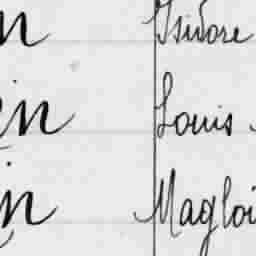 n Isidore
in Louis
in Magloi